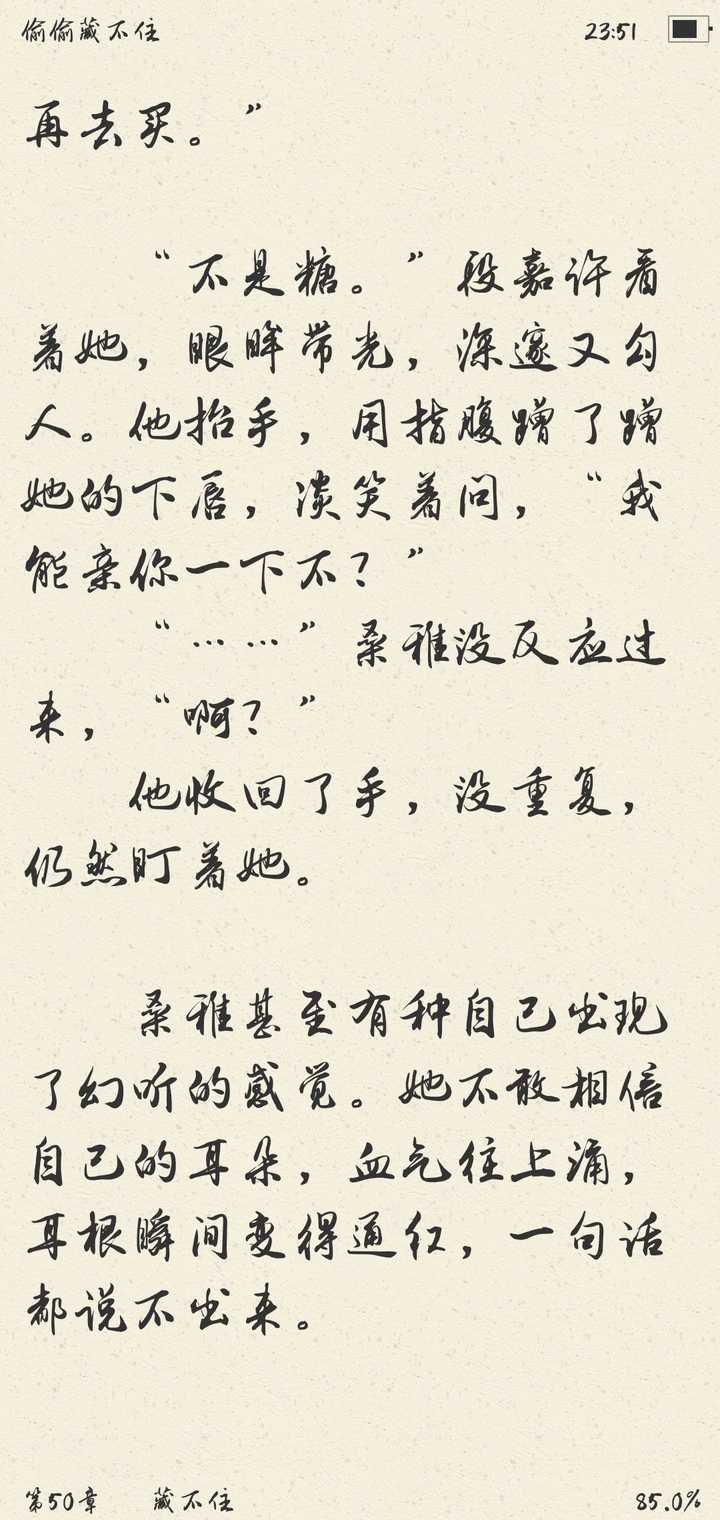 偷偷藏不住 23:51
再去买。”
“不是糖。”段嘉许看
着她，眼眸带光，深邃又勾
人。他抬手，用指腹蹭了蹭
她的下唇，淡笑着问，“我
能亲你一下不？”
“……”桑稚没反应过
来，“啊？”
他收回了手，没重复，
仍然盯着她。
桑稚甚至有种自己出现
了幻听的感觉。她不敢相信
自己的耳朵，血气往上涌，
耳根瞬间变得通红，一句话
都说不出来。
第50章 藏不住 85.0%